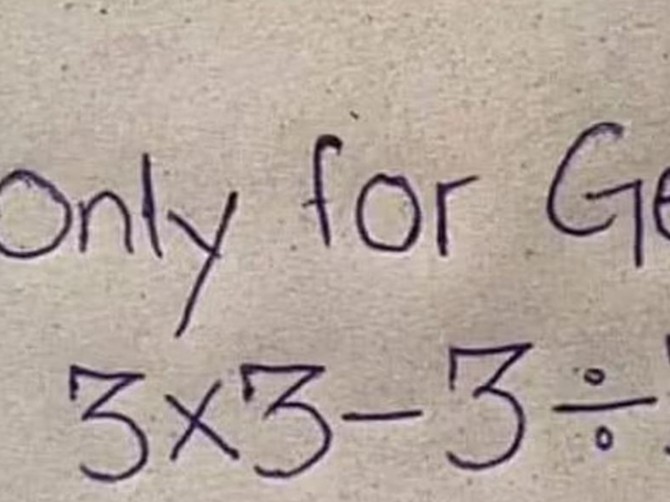 Only for Ge
3×3-3÷